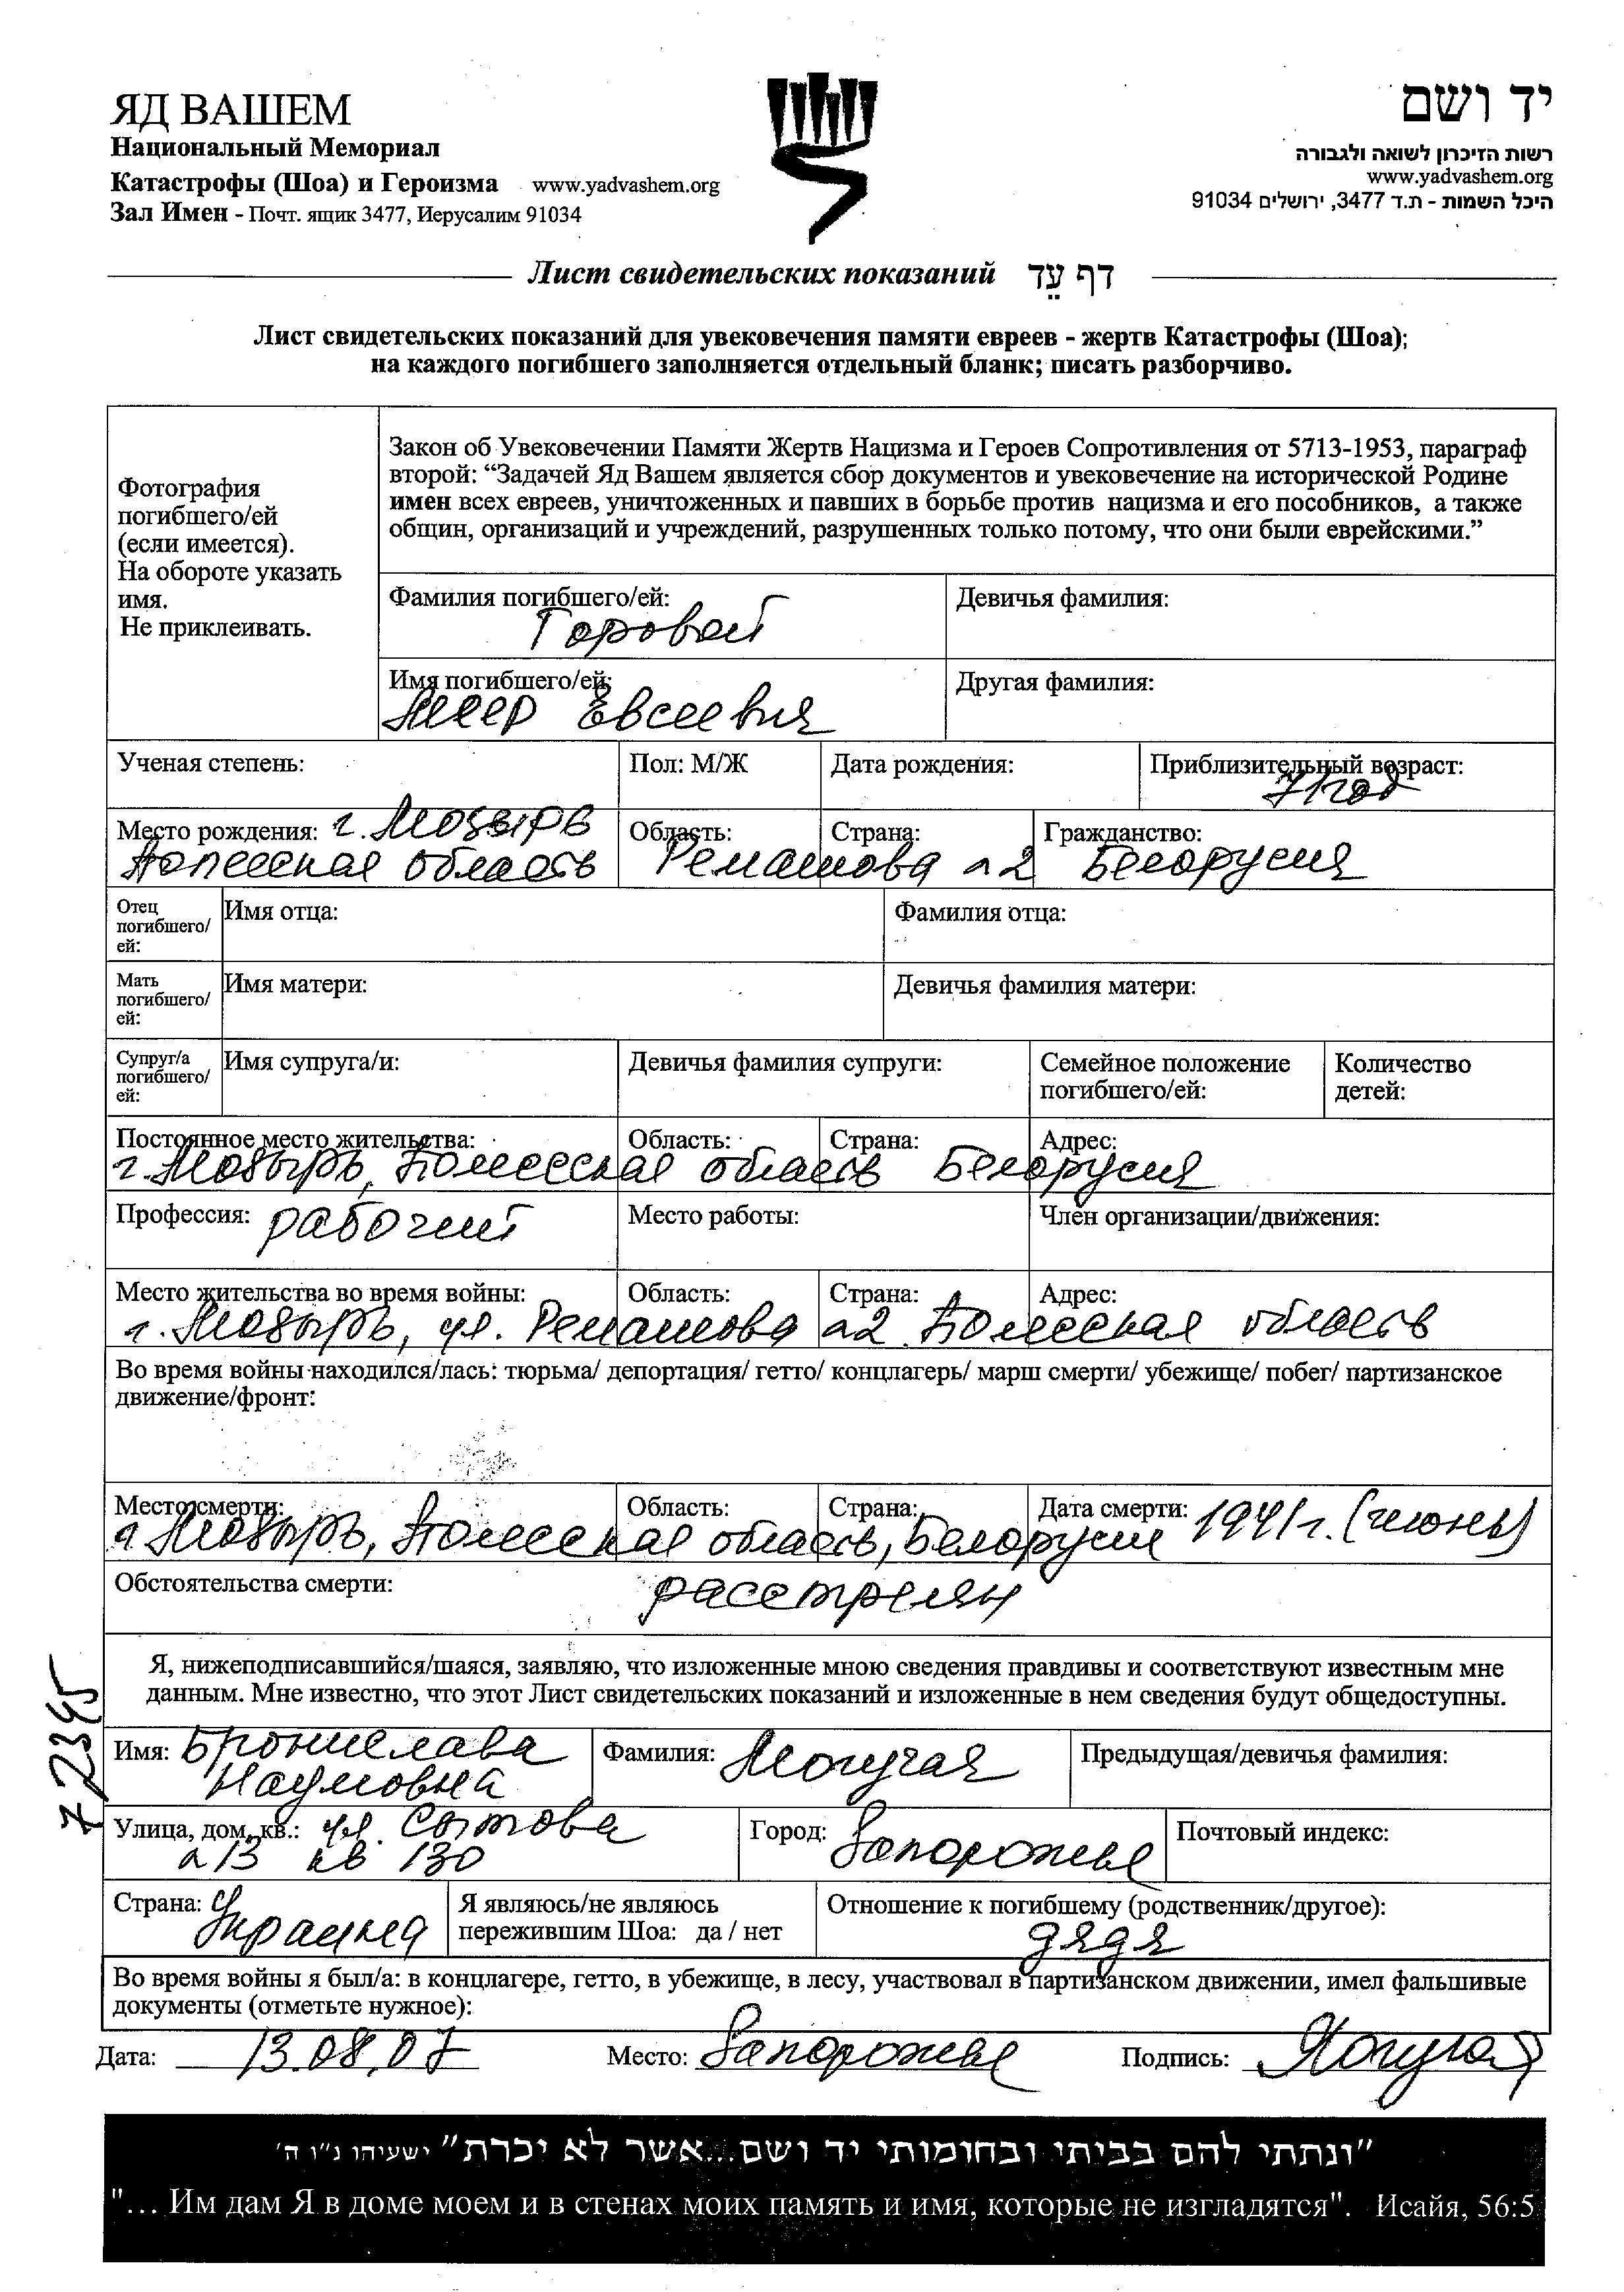 ЯД ВАШЕМ
Национальный Мемориал
Катастрофы (Шоа) и Героизма www.yadvashem.org
Зал Имен - Почт. ящик 3477, Иерусалим 91034
יד ושם
רשות הזיכרון לשואה ולגבורה
www.yadvashem.org
היכל השמות - ת.ד 3477, ירושלים 91034
Лист свидетельских показаний דף עֵד
Лист свидетельских показаний для увековечения памяти евреев - жертв Катастрофы (Шоа);
на каждого погибшего заполняется отдельный бланк; писать разборчиво.
Фотография
погибшего/ей
(если имеется).
На обороте указать
имя.
Не приклеивать.
Закон об Увековечении Памяти Жертв Нацизма и Героев Сопротивления от 5713-1953, параграф
второй: “Задачей Яд Вашем является сбор документов и увековечение на исторической Родине
имен всех евреев, уничтоженных и павших в борьбе против нацизма и его пособников, а также
общин, организаций и учреждений, разрушенных только потому, что они были еврейскими.”
Фамилия погибшего/ей: Девичья фамилия:
Горовой
Имя погибшего/ей: Другая фамилия:
Меер Евсеевич
Ученая степень: Пол: М/Ж Дата рождения: Приблизительный возраст:
71 год
Место рождения: г. Мозырь Область: Страна: Гражданство:
Полесская область Ремашова 2 Белорусия
Отец
погибшего/
ей:
Имя отца: Фамилия отца:
Мать
погибшего/
ей:
Имя матери: Девичья фамилия матери:
Супруг/а
погибшего/
ей:
Имя супруга/и: Девичья фамилия супруги: Семейное положение
погибшего/ей: Количество
детей:
Постоянное место жительства: Область: Страна: Адрес:
г. Мозырь, Полесская область Белорусия
Профессия: рабочий Место работы: Член организации/движения:
Место жительства во время войны: Область: Страна: Адрес:
г. Мозырь, ул. Ремашова 2 Полесская область
Во время войны находился/лась: тюрьма/ депортация/ гетто/ концлагерь/ марш смерти/ убежище/ побег/ партизанское
движение/фронт:
Место смерти: Область: Страна: Дата смерти: 1941 г. (июнь)
г. Мозырь, Полесская область, Белорусия
Обстоятельства смерти: расстрелян
Я, нижеподписавшийся/шаяся, заявляю, что изложенные мною сведения правдивы и соответствуют известным мне
данным. Мне известно, что этот Лист свидетельских показаний и изложенные в нем сведения будут общедоступны.
72345
Имя: Бронислава Фамилия: Могучая Предыдущая/девичья фамилия:
Наумовна
Улица, дом, кв.: ул. Сытова Город: Запорожье Почтовый индекс:
13 кв 130
Страна: Украина Я являюсь/не являюсь
пережившим Шоа: да / нет
Отношение к погибшему (родственник/другое):
дядя
Во время войны я был/а: в концлагере, гетто, в убежище, в лесу, участвовал в партизанском движении, имел фальшивые
документы (отметьте нужное):
Дата: 13.08.07 Место: Запорожье Подпись: Могучая
"ונתתי להם בביתי ובחומותי יד ושם...אשר לא יכרת" ישעיהו נ"ו ה'
"... Им дам Я в доме моем и в стенах моих память и имя, которые не изгладятся". Исайя, 56:5